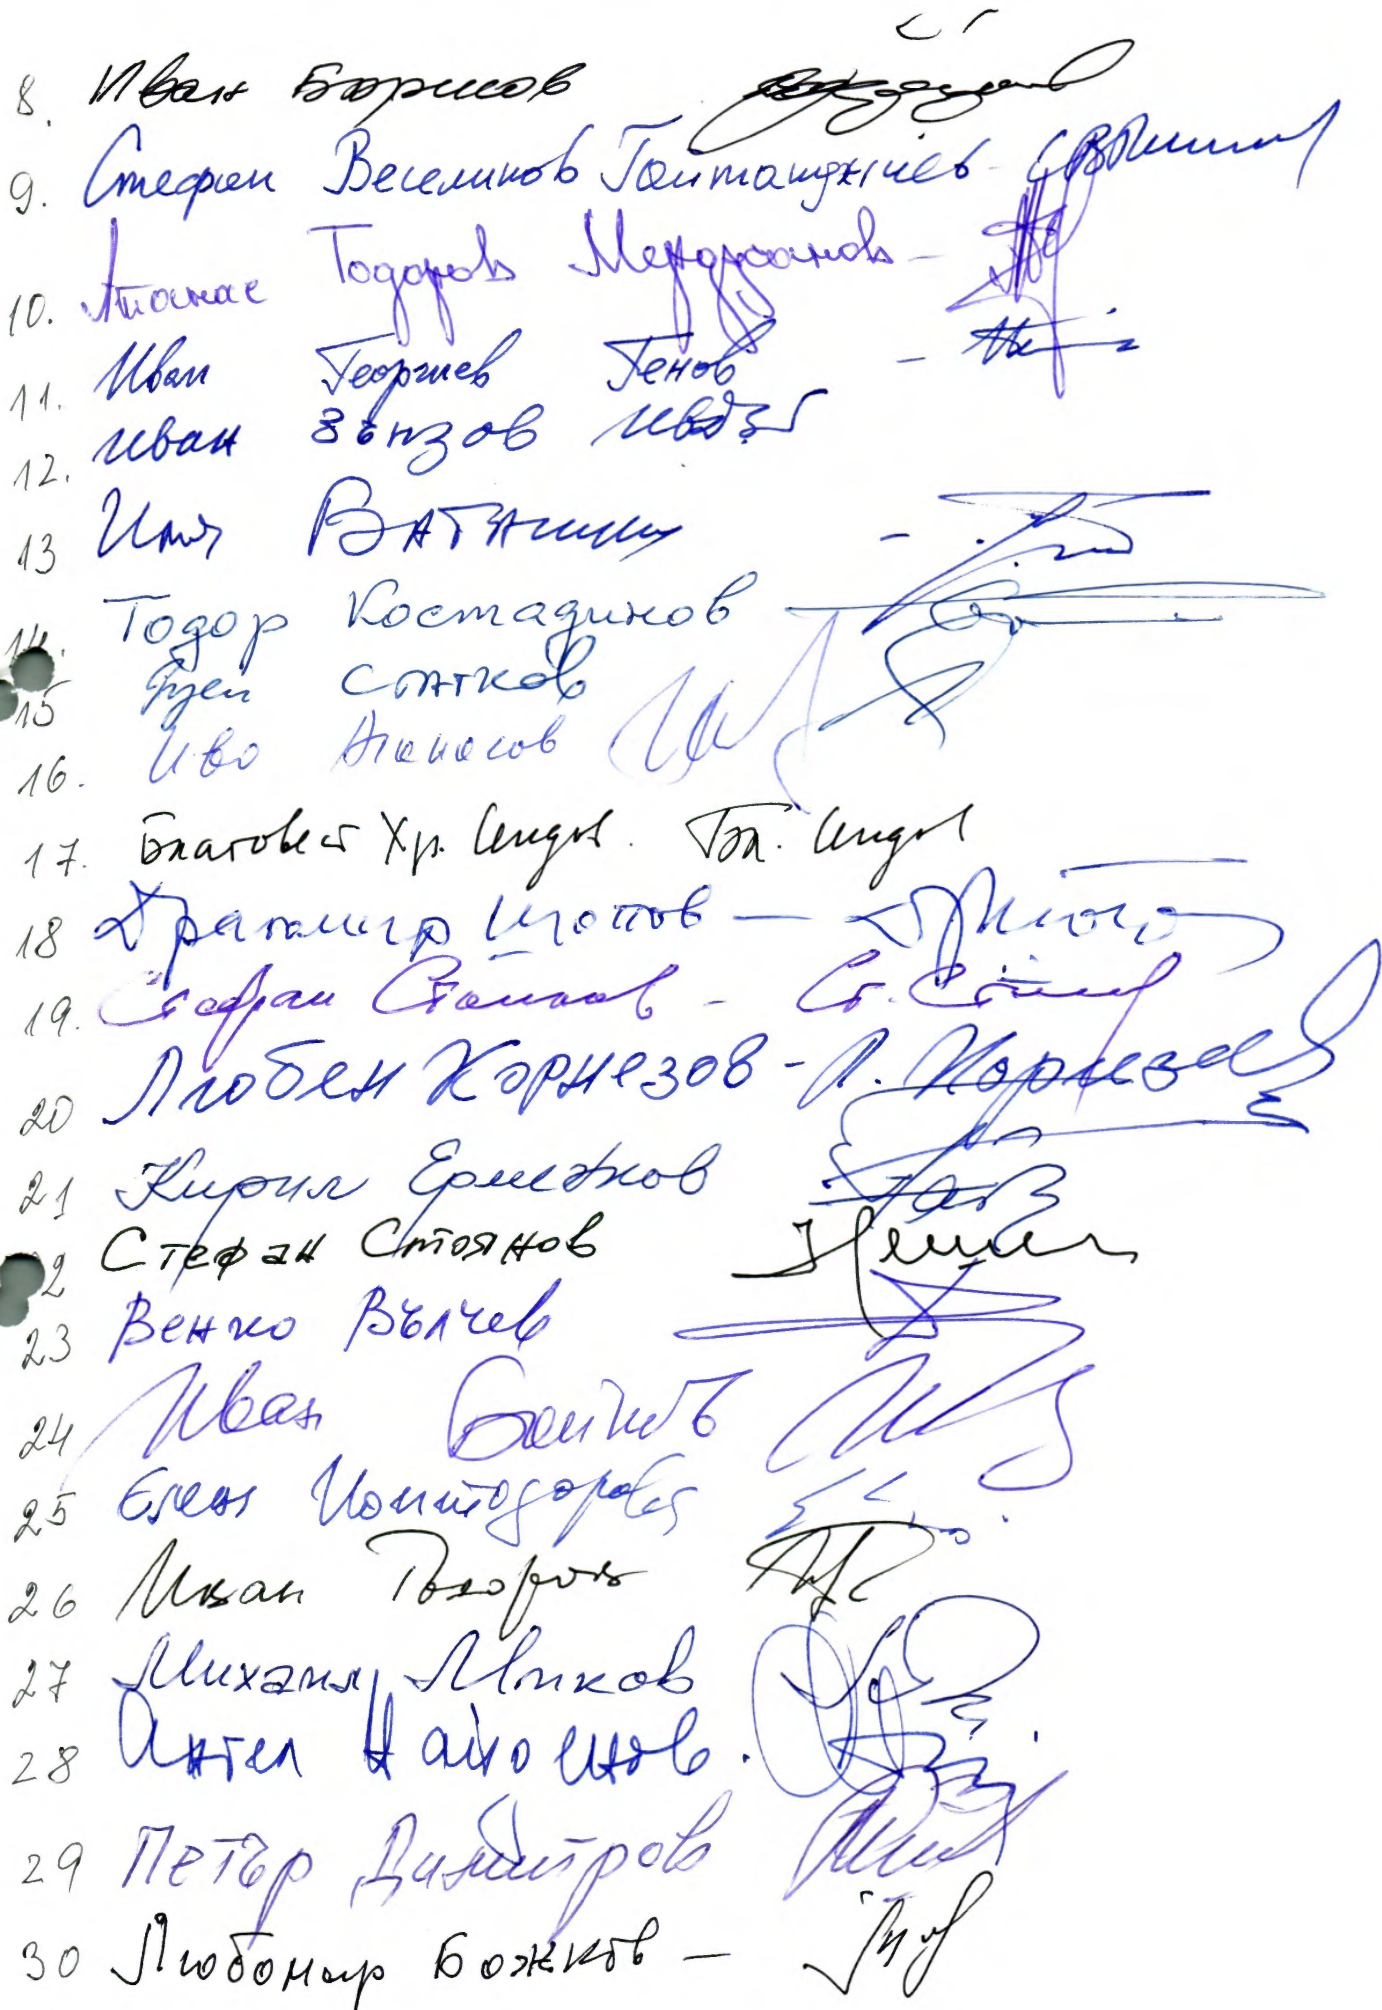 8. Иван Борисов
9. Стефан Веселинов Гайтанджиев -
10. Атанас Тодоров Мерджанов -
11. Иван Георгиев Генов -
12. Иван Зънзов
13 Илия Баташки -
14. Тодор Костадинов
15 Спатков
16. Иво Атанасов
17. Благовест Хр. Сендов. Бл. Сендов
18 Драгомир Шопов —
19. Стефан Стоилов - Ст. Стоилов
20 Любен Корнезов - Л. Корнезов
21 Кирил Ерменков
22 Стефан Стоянов
23 Венко Вълчев
24 Иван Бойков
25 Елена Поптодорова
26 Иван Тодоров
27 Михаил Миков
28 Ангел Найденов.
29 Петър Димитров
30 Любомир Божков —